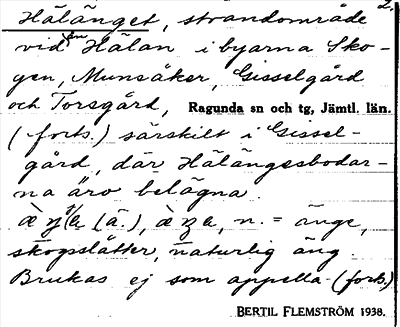 2.
Hälänget, strandområde
vid ån Hälan i byarna Sko-
gen, Munsåker, Gisselgård
och Torsgård, Ragunda sn och tg, Jämtl. län.
(forts.) särskilt i Gissel-
gård, där Hälängesbodar-
na äro belägna.
(ä.), n. = änge,
skogsslåtter, naturlig äng.
Brukas ej som appella- (forts.)
BERTIL FLEMSTRÖM 1938.